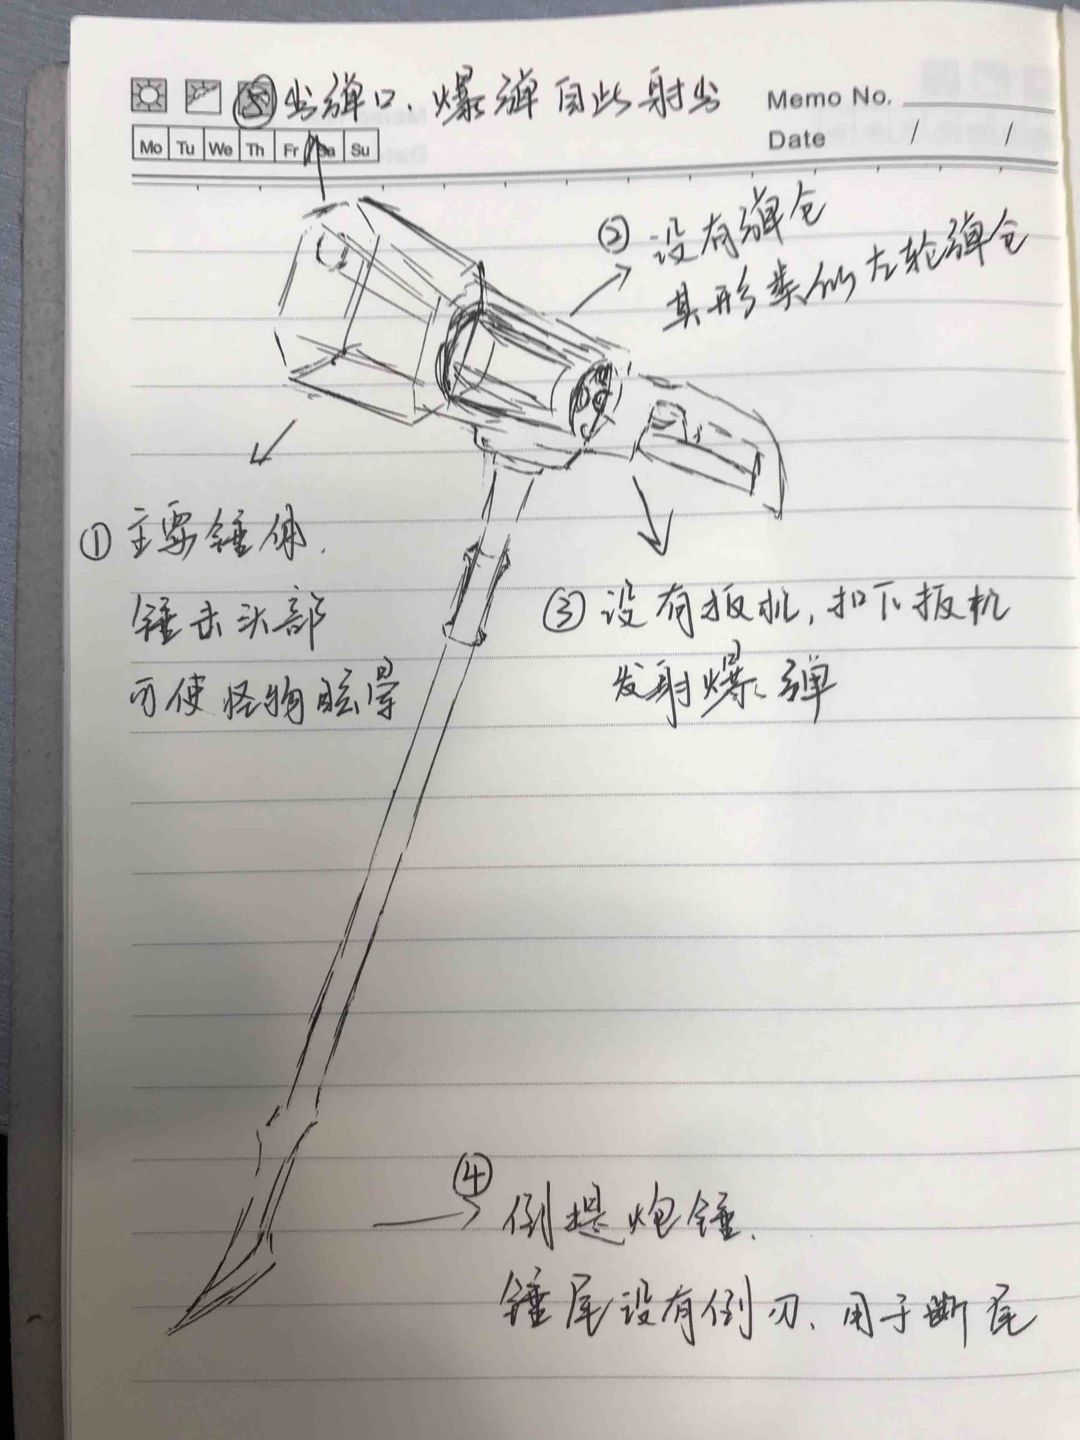 ⑤出弹口、爆弹自此射出
Memo No.
Mo Tu We Th Fr Sa Su
Date / /
②没有弹仓
其形类似左轮弹仓
①主要锤体.
锤击头部
可使怪物眩晕
③设有扳机,扣下扳机
发射爆弹
④
倒提炮锤.
锤尾设有倒刃、用于断尾